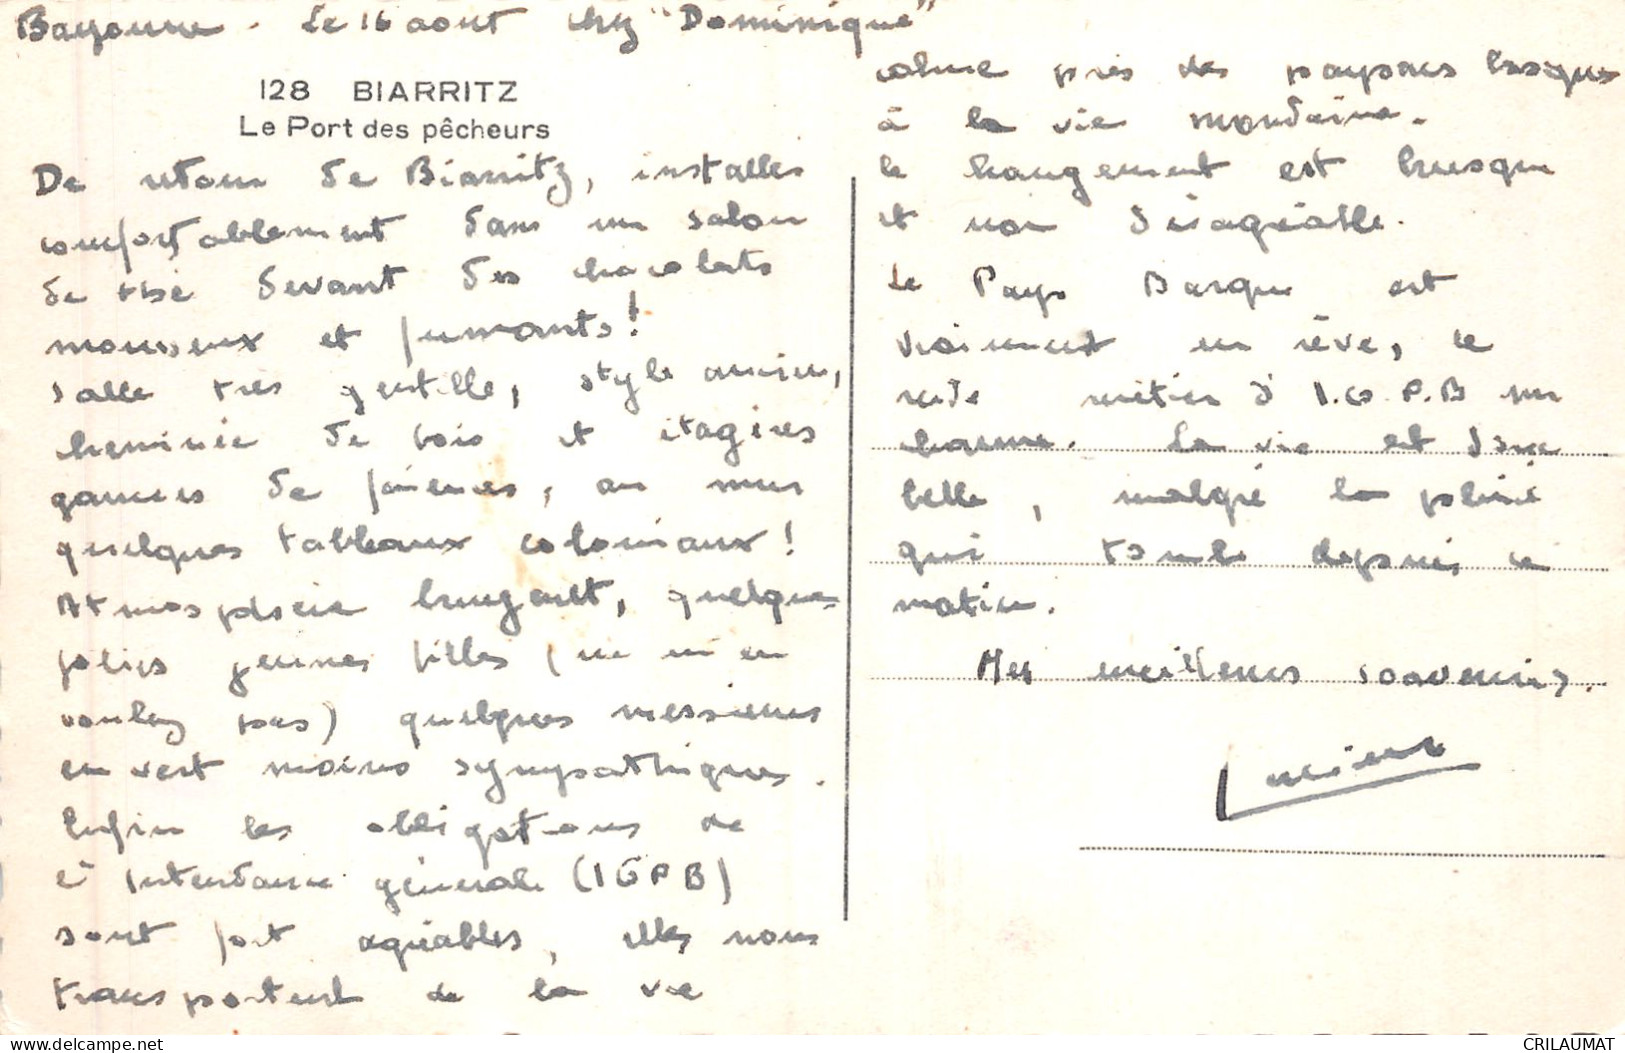 Bayonne. Le 16 aout chez "Dominique"
128 BIARRITZ
Le Port des pêcheurs
De retour de Biarritz, installés
confortablement dans un salon
de thé devant des chocolats
mousseux et fumants!
salle très gentille, style ancien,
cheminée de bois et étagères
garnies de faiences, au mur
quelques tableaux coloniaux!
Atmosphère bourgeoise, quelques
jolies jeunes filles (ne m'en
voulez pas) quelques messieurs
en vert moins sympathiques.
Enfin les obligations de
l'Intendance générale (IGPB)
sont fort agréables, elles nous
transportent de la vie
calme près des paysans basques
à la vie mondaine.
le changement est brusque
et non désagréable.
Le Pays Basque est
vraiment un rêve, le
rude métier d'I.G.P.B un
charme. La vie est donc
belle, malgré la pluie
qui tombe depuis ce
matin.
Mes meilleurs souvenirs.
Lucien
CRILAUMAT